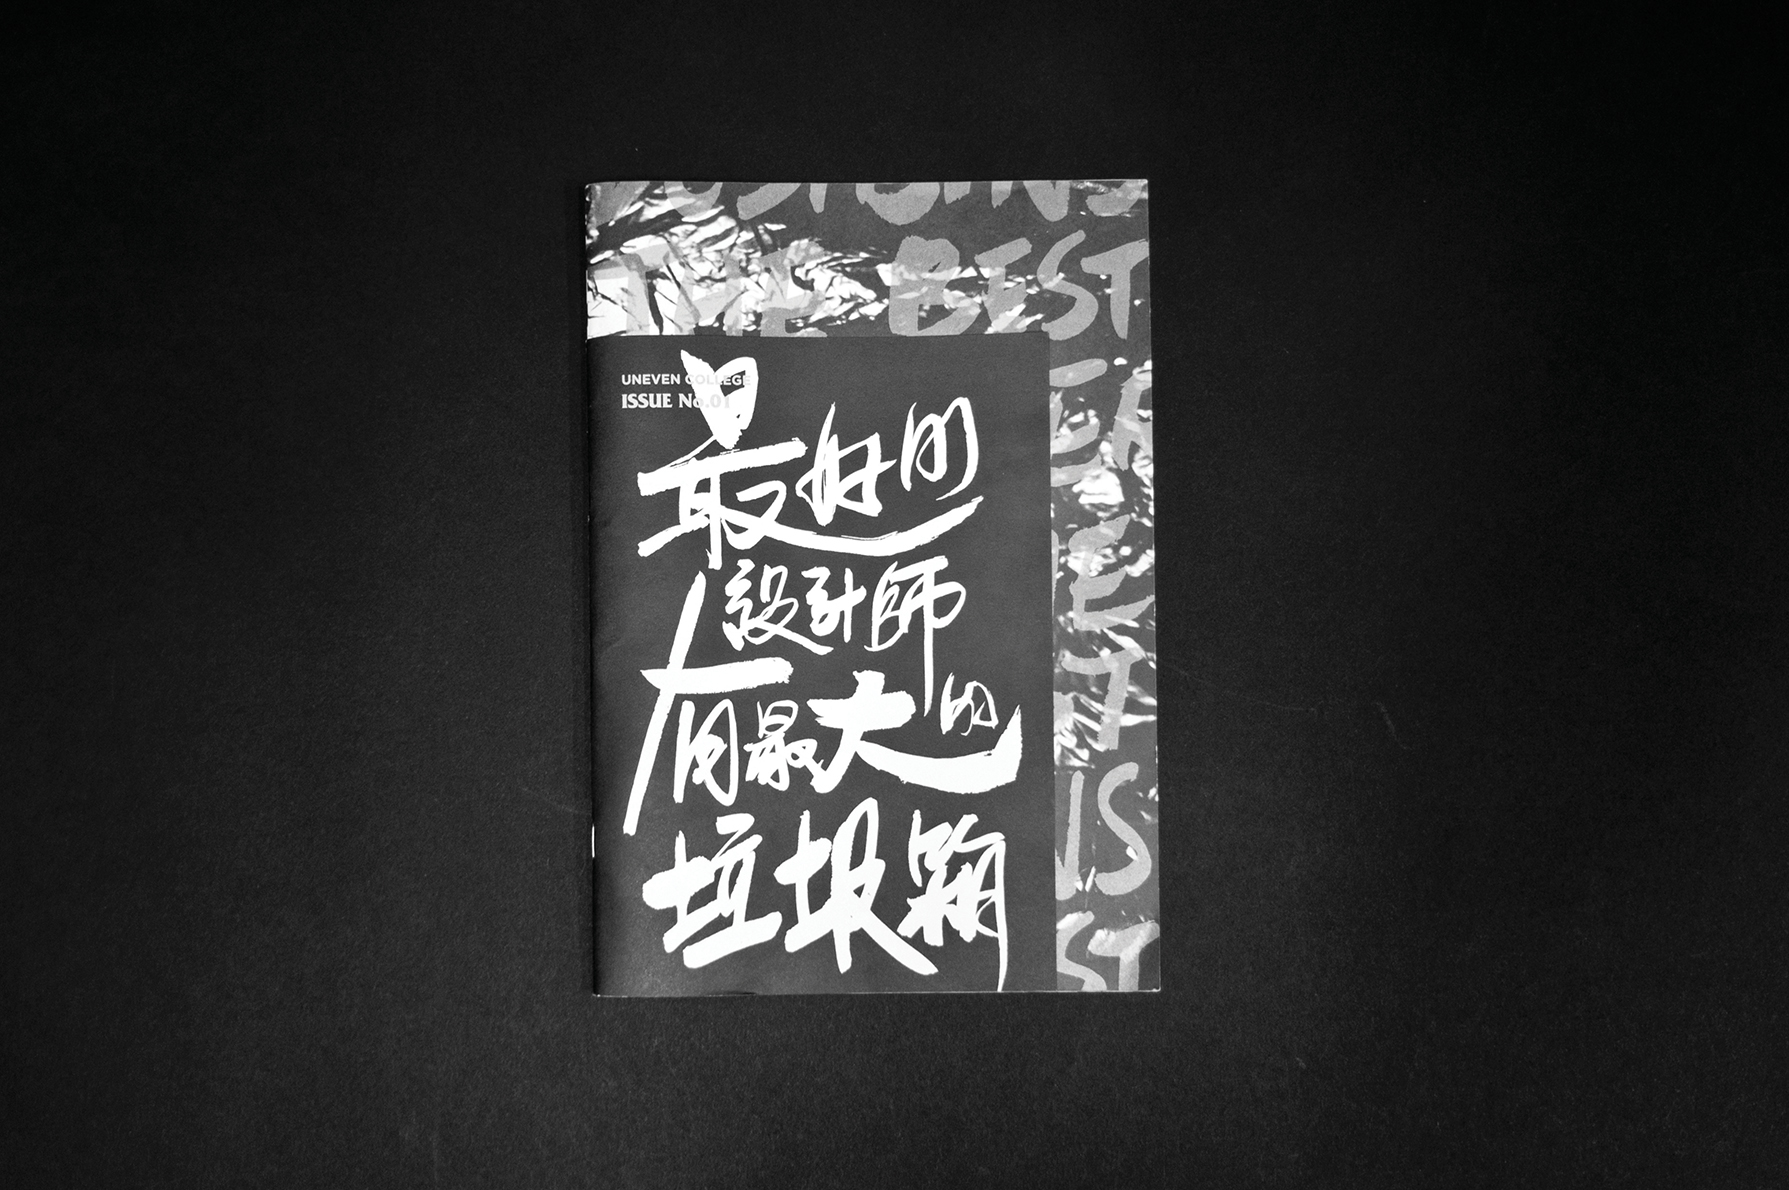 THE BEST
UNEVEN COLLEGE
ISSUE No.01
最好的
設計師
有最大的
垃圾箱
ST